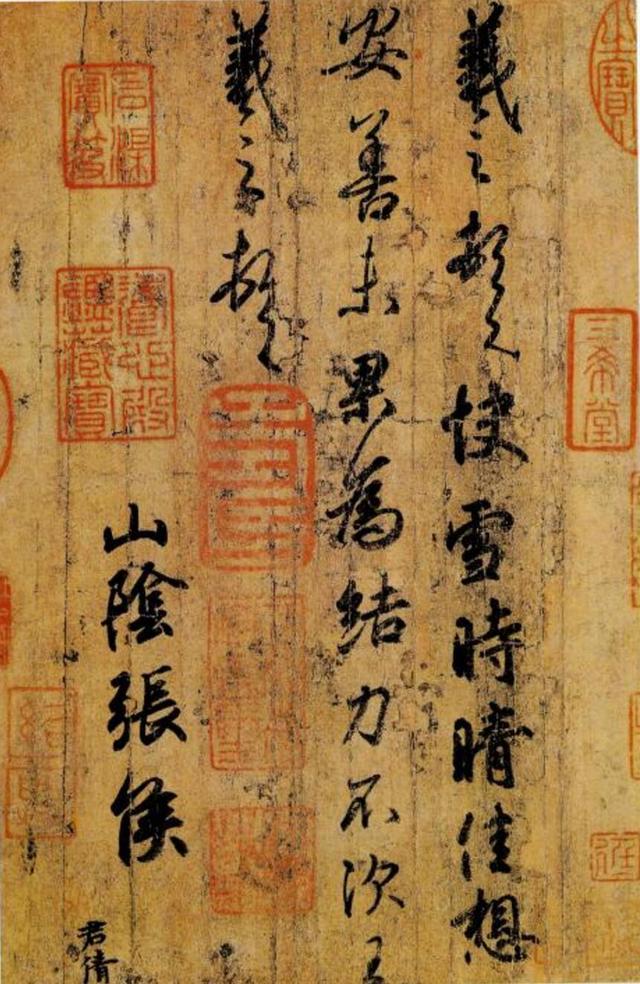 之寶
三希堂
羲之頓首快雪時晴佳想
安善未果為結力不次王
羲之頓首
山陰張侯
君倩
石渠
寶笈
養心殿
鑑藏寶